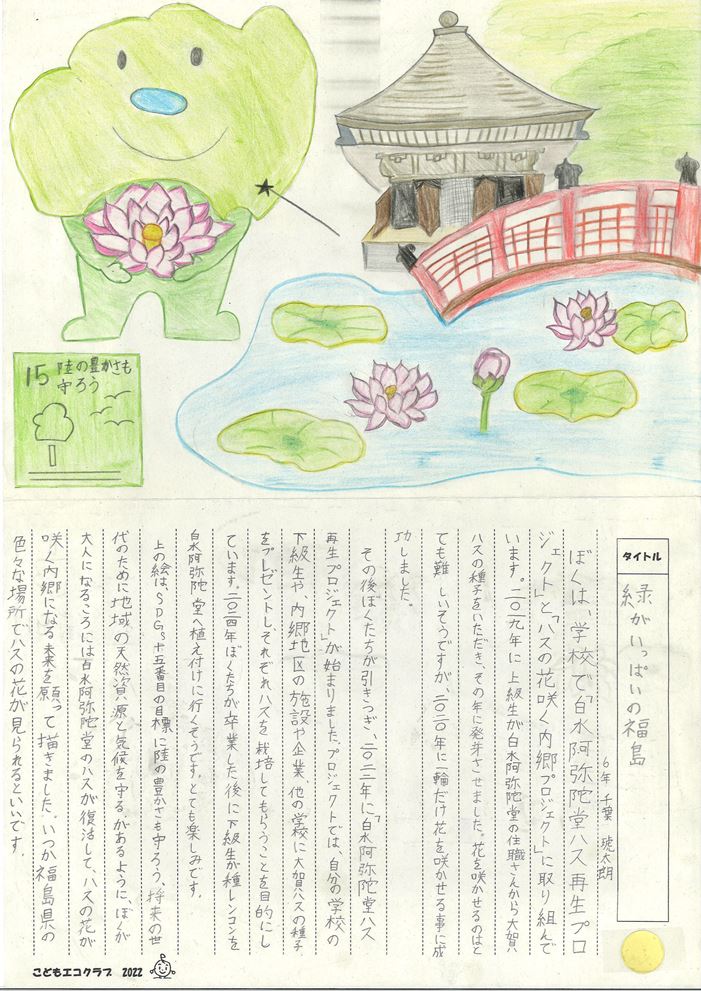 15 陸の豊かさも
守ろう
タイトル
緑がいっぱいの福島
6年 千葉 琥太朗
ぼくは、学校で「白水阿弥陀堂ハス再生プロ
ジェクト」と「ハスの花咲く内郷プロジェクト」に取り組んで
います。二〇一九年に上級生が白水阿弥陀堂の住職さんから大賀
ハスの種子をいただき、その年に発芽させました。花を咲かせるのはと
ても難しいそうですが、二〇二〇年に一輪だけ花を咲かせる事に成
功しました。
その後ぼくたちが引きつぎ、二〇二二年に「白水阿弥陀堂ハス
再生プロジェクト」が始まりました。プロジェクトでは、自分の学校の
下級生や、内郷地区の施設や企業、他の学校に大賀ハスの種子
をプレゼントし、それぞれハスを栽培してもらうことを目的にし
ています。二〇二四年ぼくたちが卒業した後に下級生が種レンコンを
白水阿弥陀堂へ植え付けに行くそうです。とても楽しみです。
上の絵は、SDGs十五番目の目標に陸の豊かさも守ろう、将来の世
代のために地域の天然資源と気候を守るがあるように、ぼくが
大人になるころには白水阿弥陀堂のハスが復活して、ハスの花が
咲く内郷になる未来を願って描きました。いつか福島県の
色々な場所でハスの花が見られるといいです。
こどもエコクラブ 2022